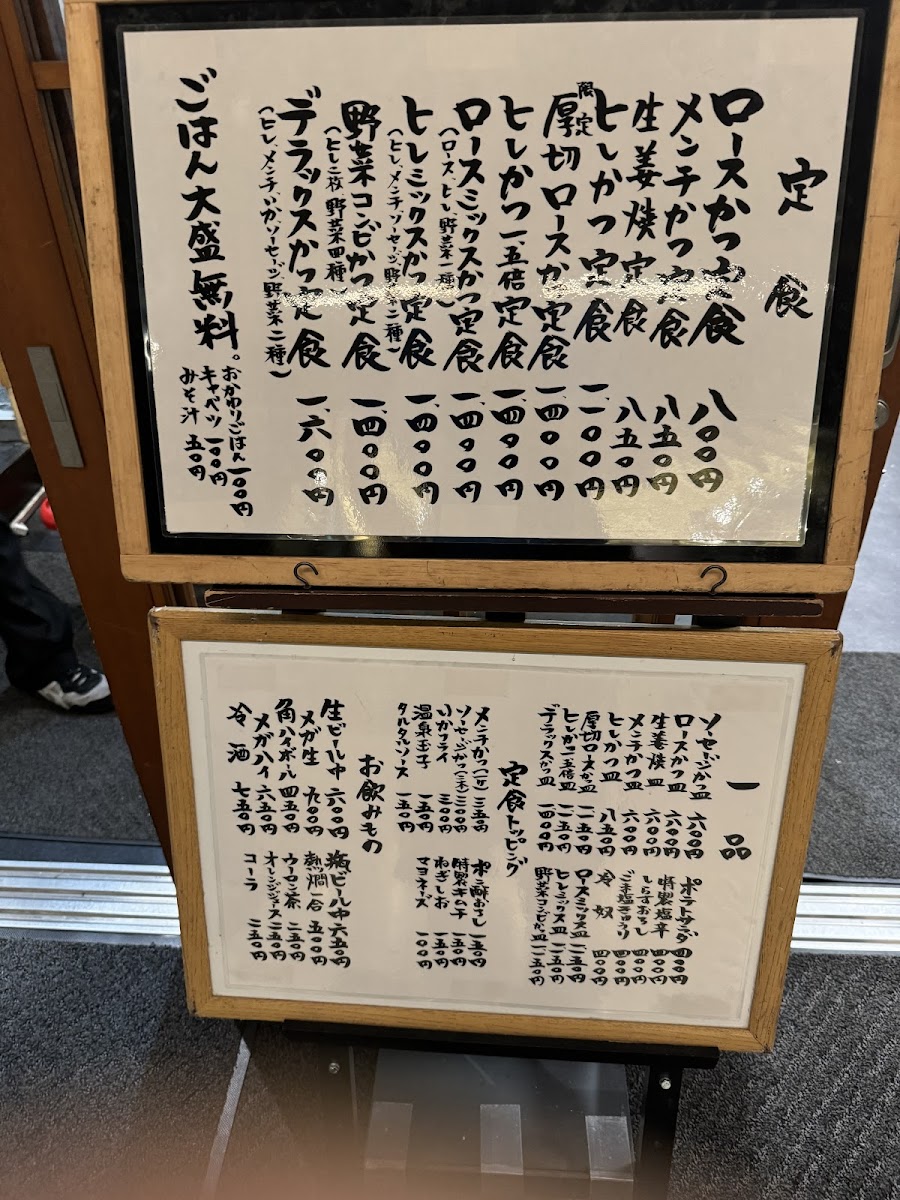 定食
ロースかつ定食 八〇〇円
メンチかつ定食 八五〇円
生姜焼定食 八五〇円
ヒレかつ定食 一、一〇〇円
限定 厚切ロースかつ定食 一、四〇〇円
ヒレかつ一、五倍定食 一、四〇〇円
ロースミックスかつ定食 一、四〇〇円
(ロース、ヒレ、野菜一種)
ヒレミックスかつ定食 一、四〇〇円
(ヒレ、メンチ、ソーセージ、野菜二種)
野菜コンビかつ定食 一、四〇〇円
(ヒレ二枚 野菜四種)
デラックスかつ定食 一、六〇〇円
(ヒレ、メンチ、いか、ソーセージ、野菜二種)
ごはん大盛無料。
おかわりごはん一〇〇円
キャベツ 一〇〇円
みそ汁 五〇円
一品
ソーセージかつ皿 六〇〇円
ロースかつ皿 六〇〇円
生姜焼皿 六〇〇円
メンチかつ皿 六〇〇円
ヒレかつ皿 八五〇円
厚切ロースかつ皿 一二五〇円
ヒレかつ一、五倍皿 一二五〇円
デラックスかつ皿 一四〇〇円
ポテトサラダ 四〇〇円
特製塩辛 四〇〇円
しらすおろし 四〇〇円
ごま塩きゅうり 四〇〇円
冷奴 四〇〇円
ロースミックス皿 一二五〇円
ヒレミックス皿 一二五〇円
野菜コンビかつ皿 一二五〇円
定食トッピング
メンチかつ(一ケ) 三五〇円
ソーセージかつ(二本) 三〇〇円
いかフライ 三〇〇円
温泉玉子 一五〇円
タルタルソース 一五〇円
ポン酢おろし 一五〇円
特製キムチ 一五〇円
ねぎしお 一五〇円
マヨネーズ 一〇〇円
お飲みもの
生ビール中 六〇〇円
メガ生 九〇〇円
角ハイボール 四五〇円
メガハイ 六五〇円
冷酒 七五〇円
瓶ビール中 六五〇円
熱燗一合 五〇〇円
ウーロン茶 二五〇円
オレンジジュース 二五〇円
コーラ 二五〇円